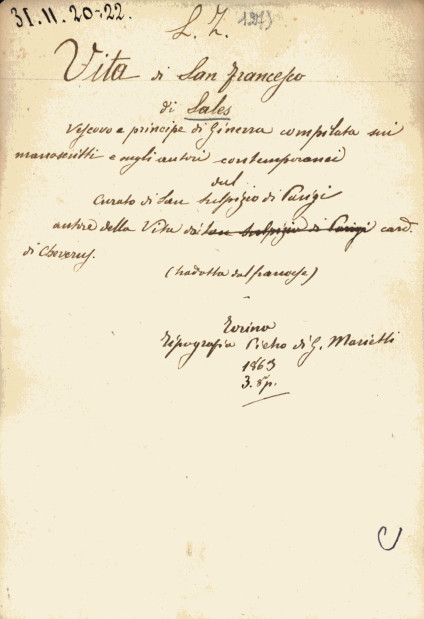 31. II. 20-22.
L. Z.
Vita di San Francesco
di Sales
Vescovo e principe di Ginevra compilata sui
manoscritti e sugli autori contemporanei
dal
Curato di San Sulpizio di Parigi
autore della Vita del San Sulpizio di Parigi card.
di Cheverus.
(tradotta dal francese)
Torino
Tipografia Pietro di G. Marietti
1863
3. 8p.